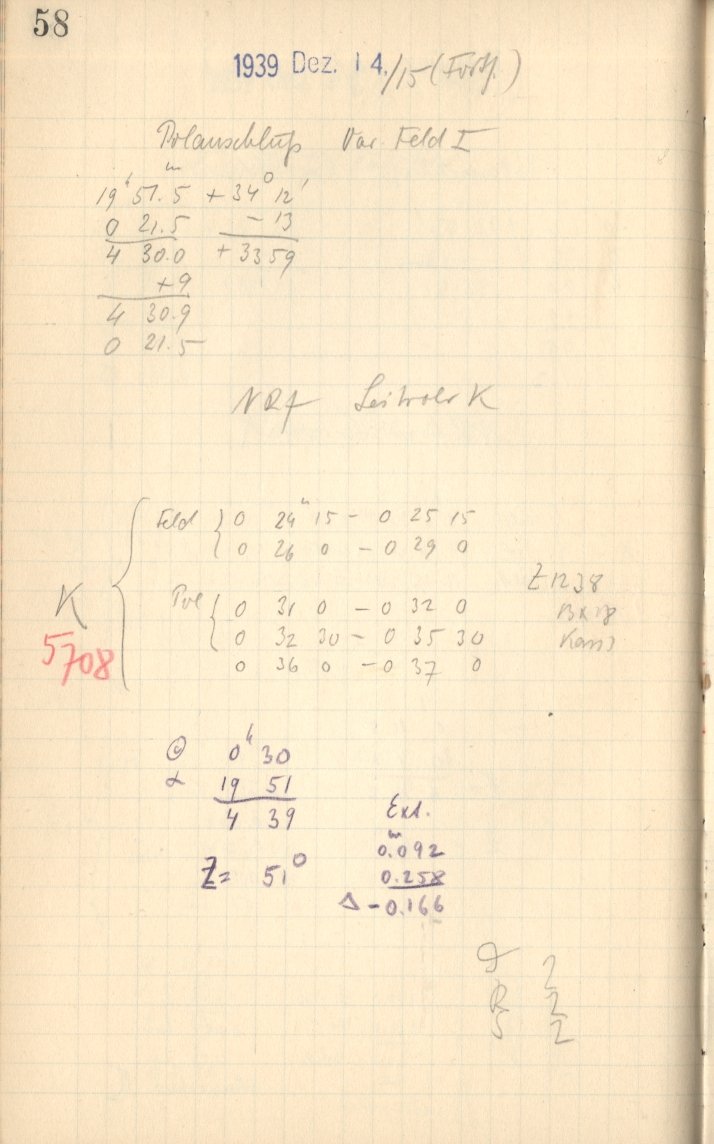 58
1939 Dez. 14./15 (Forts.)
Polanschluß Var. Feld I
19ʰ 51.ᵐ5 + 34° 12'
0 21.5 - 13
4 30.0 + 33 59
+9
4 30.9
0 21.5
Feld { 0 24ᵐ 15 - 0 25 15
0 26 0 - 0 29 0
Z 1238
Pol { 0 31 0 - 0 32 0
K
0 32 30 - 0 35 30
5708
0 36 0 - 0 37 0
0ʰ 30
α 19 51
4 39
Ext.
0.ᵐ092
Z = 51°
0.258
Δ - 0.166
2
2
S 2